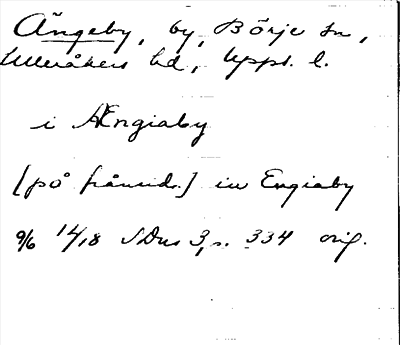 Ängeby, by, Börje sn,
Ulleråkers hd, Upps. l.
i Ængiaby
[på frånsid.] in Engiaby
9/6 1418 SDns 3, s. 334 orig.